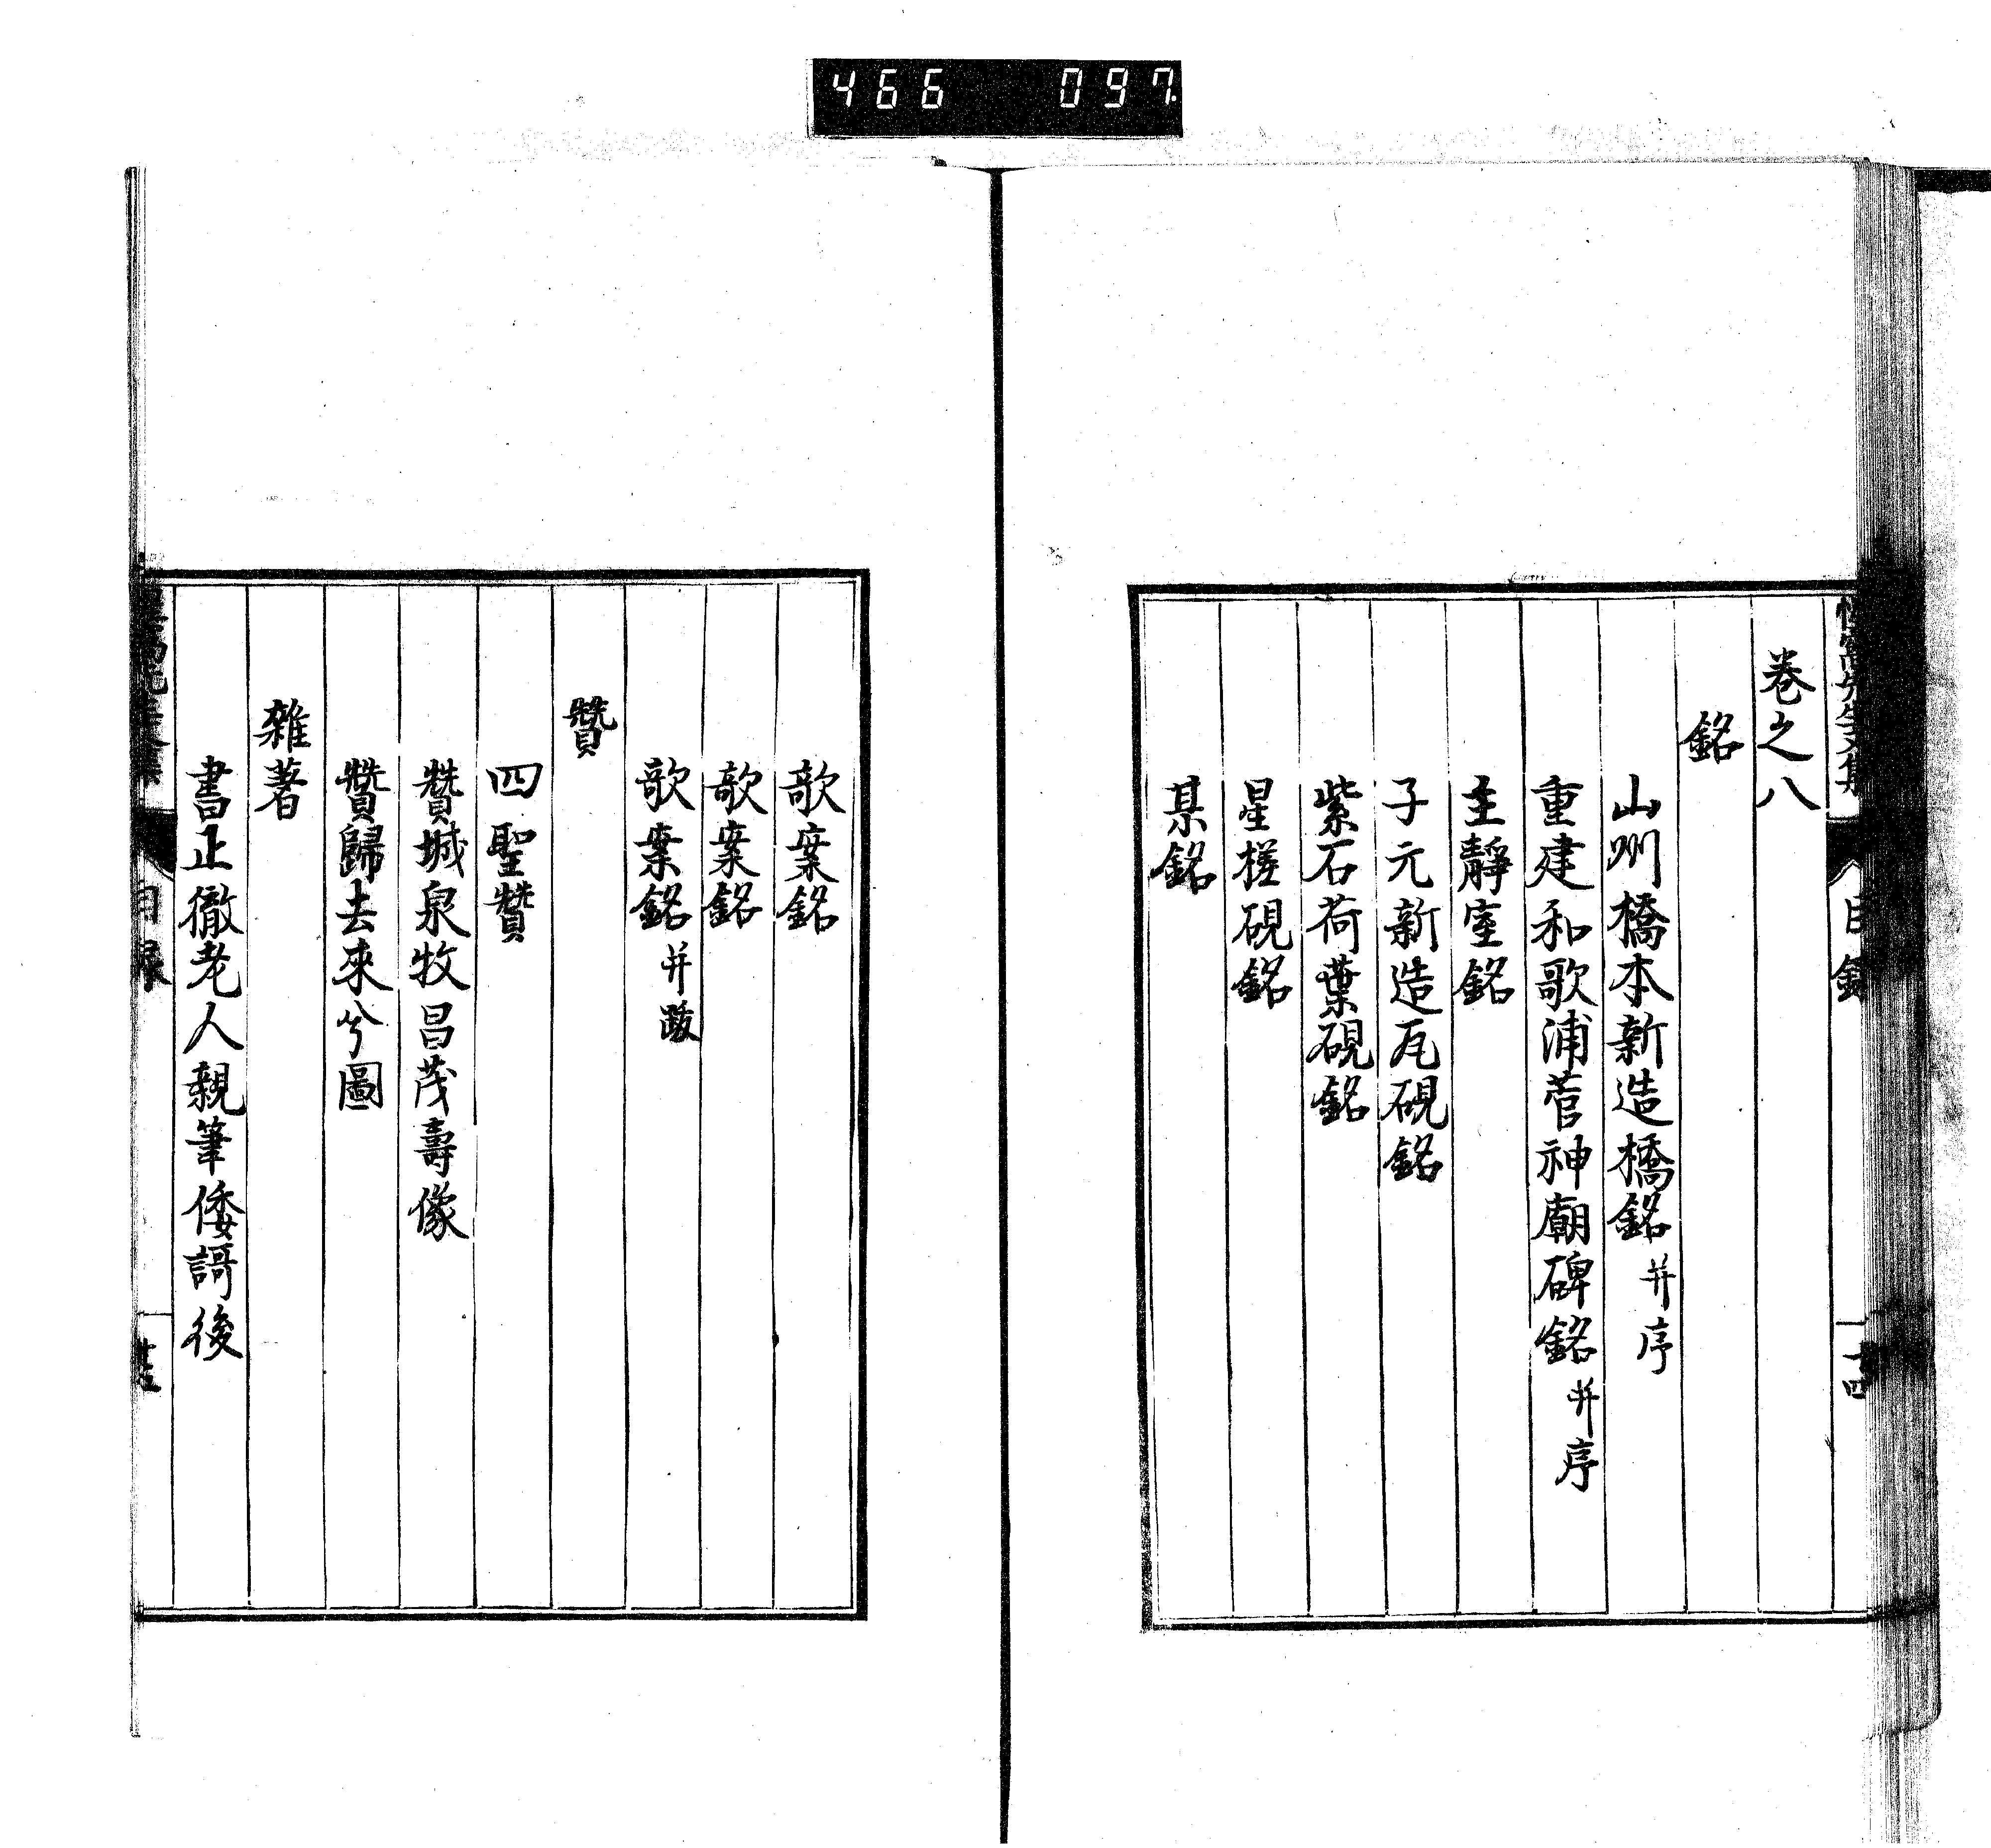 466 097
卷之八
銘
山州橋本新造橋銘并序
重建和歌浦菅神廟碑銘并序
主靜室銘
子元新造瓦硯銘
紫石荷葉硯銘
星槎硯銘
棊銘
歌案銘
歌案銘
歌案銘并跋
贊
四聖贊
贊城泉牧昌茂壽像
贊歸去來兮圖
雜著
書正徹老人親筆倭謌後
目錄